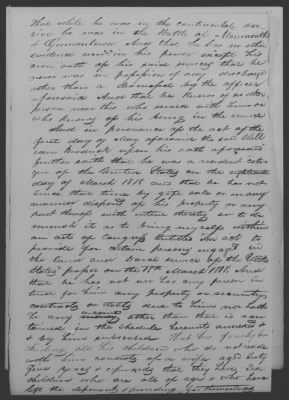 that while he was in the continental ser
vice he was in the Battle at Monmouth
& Germantown And that he has no other
evidence now in his power except his
own oath of his said services that he
never was in possession of any discharge
other than a discharge by the officer
aforesaid And that he knows of no other
person now this who served with him or
who knows of his being in the service
And in pursuance of the act of the
first day of May aforesaid the said
upon his oath aforesaid
further saith that he was a resident citi
zen of the United States on the eighteenth
day of March 1818 and that he has not
since that time by gift sale or in any
manner disposed of his property or any
part thereof with intent thereby so to di
minish it as to bring myself within
an act of Congress entitled An act to
provide for certain persons engaged in
the land and Naval service of the United
States passed on the 18th March 1818. And
that he has not nor has any person in
trust for him any property or security,
contracts or debts due to him nor has
he any income other than what is con
tained in the schedule hereunto annexed &
& by him subscribed That his family
by all his children who do not reside
with him consists of a wife aged Sixty
five years & upwards that they have six
children who are all of age & who have
left the deponent